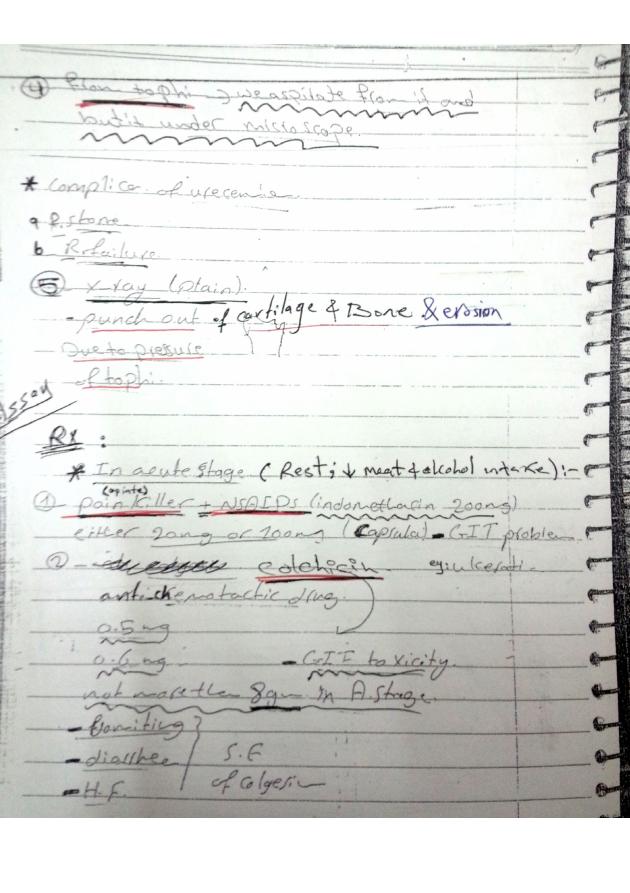 ④ from tophi → we aspirate from it and
but it under microscope.
* Complica. of urecemia
a R. stone
b R. failure
⑤ x-ray (plain).
- punch out of cartilage & Bone & erosion
Due to presure
of tophi.
Essay
Rx :
* In acute stage (Rest; ↓ meat & alcohol intake) :-
(opiate)
① pain killer + NSAIDs (indomethacin 200mg)
either 20mg or 100mg (Capsula) - GIT problem
② - colchicin eg: ulcerati-
antichemotactic drug.
0.5 mg
0.6 mg - GIT toxicity.
not more than 8gm in A. stage.
- Vomiting
- diarrhea S.E
- H.F. of Colgesin